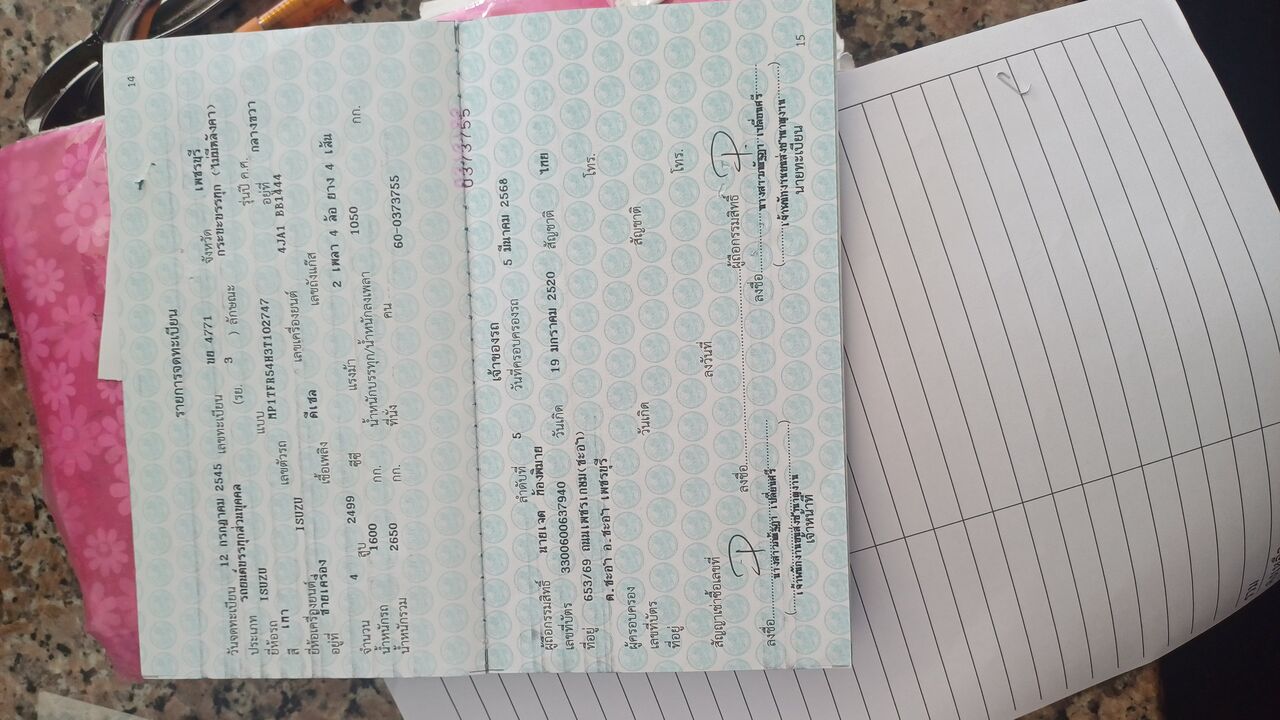 14
รายการจดทะเบียน
วันจดทะเบียน 12 กรกฎาคม 2545 เลขทะเบียน ขย 4771 จังหวัด เพชรบุรี
ประเภท รถยนต์บรรทุกส่วนบุคคล (รย. 3 ) ลักษณะ กระบะบรรทุก (ไม่มีหลังคา)
ยี่ห้อรถ ISUZU แบบ รุ่นปี ค.ศ.
สี เทา เลขตัวรถ MP1TFR54H3T102747 อยู่ที่ กลางขวา
ยี่ห้อเครื่องยนต์ ISUZU เลขเครื่องยนต์ 4JA1 BB1444
อยู่ที่ ซ้ายเครื่อง เชื้อเพลิง ดีเซล เลขถังแก๊ส
จำนวน 4 สูบ 2499 ซีซี แรงม้า 2 เพลา 4 ล้อ ยาง 4 เส้น
น้ำหนักรถ 1600 กก. น้ำหนักบรรทุก/น้ำหนักลงเพลา 1050 กก.
น้ำหนักรวม 2650 กก. ที่นั่ง คน 60-0373755
0373755
เจ้าของรถ
ลำดับที่ 5 วันที่ครอบครองรถ 5 มีนาคม 2568
ผู้ถือกรรมสิทธิ์ นายเจต ก้องพิมาย
เลขที่บัตร 3300600637940 วันเกิด 19 มกราคม 2520 สัญชาติ ไทย
ที่อยู่ 653/69 ถนนเพชรเกษม(ชะอำ) โทร.
ต.ชะอำ อ.ชะอำ เพชรบุรี
ผู้ครอบครอง
เลขที่บัตร วันเกิด สัญชาติ
ที่อยู่ โทร.
สัญญาเช่าซื้อเลขที่ ลงวันที่
ลงชื่อ ผู้ถือกรรมสิทธิ์
ลงชื่อ ลงชื่อ
เจ้าหน้าที่ นายทะเบียน
15